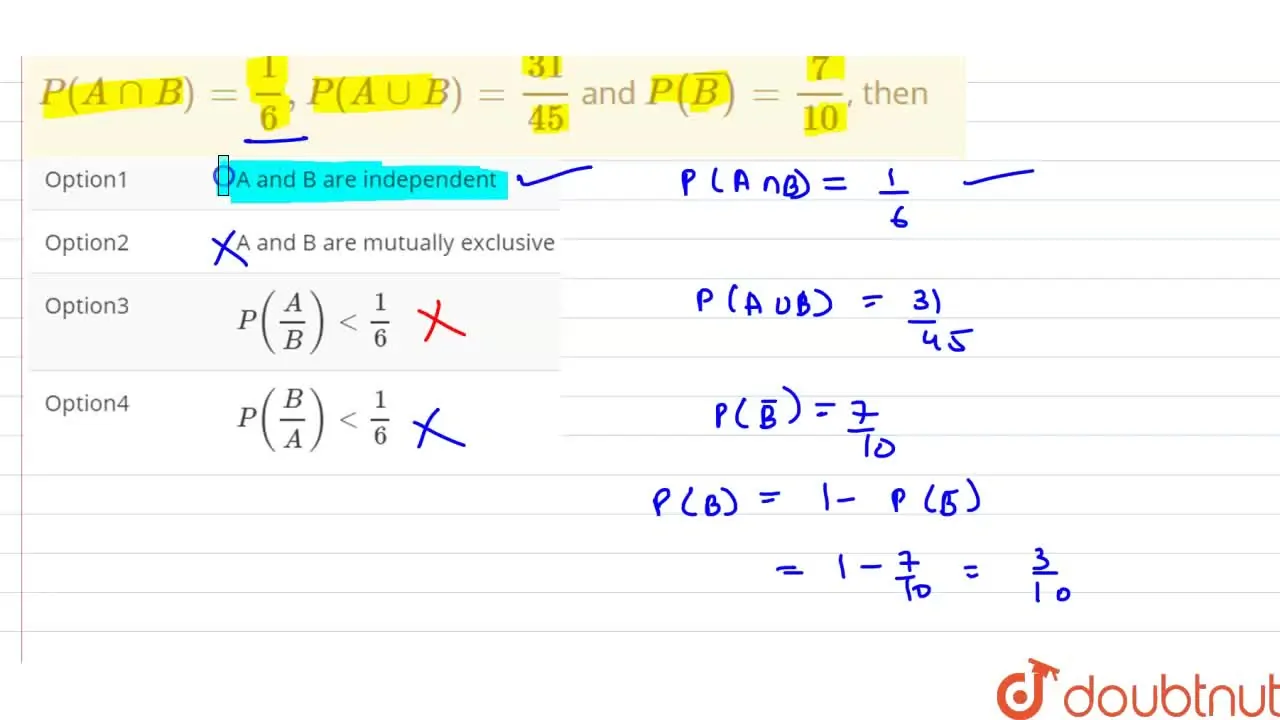 P(A ∩ B) = 1/6, P(A ∪ B) = 31/45 and P(B̅) = 7/10, then
Option1 A and B are independent
Option2 A and B are mutually exclusive
Option3 P(A/B) < 1/6
Option4 P(B/A) < 1/6
P(A ∩ B) = 1/6
P(A ∪ B) = 31/45
P(B̅) = 7/10
P(B) = 1 - P(B̅)
= 1 - 7/10 = 3/10
doubtnut